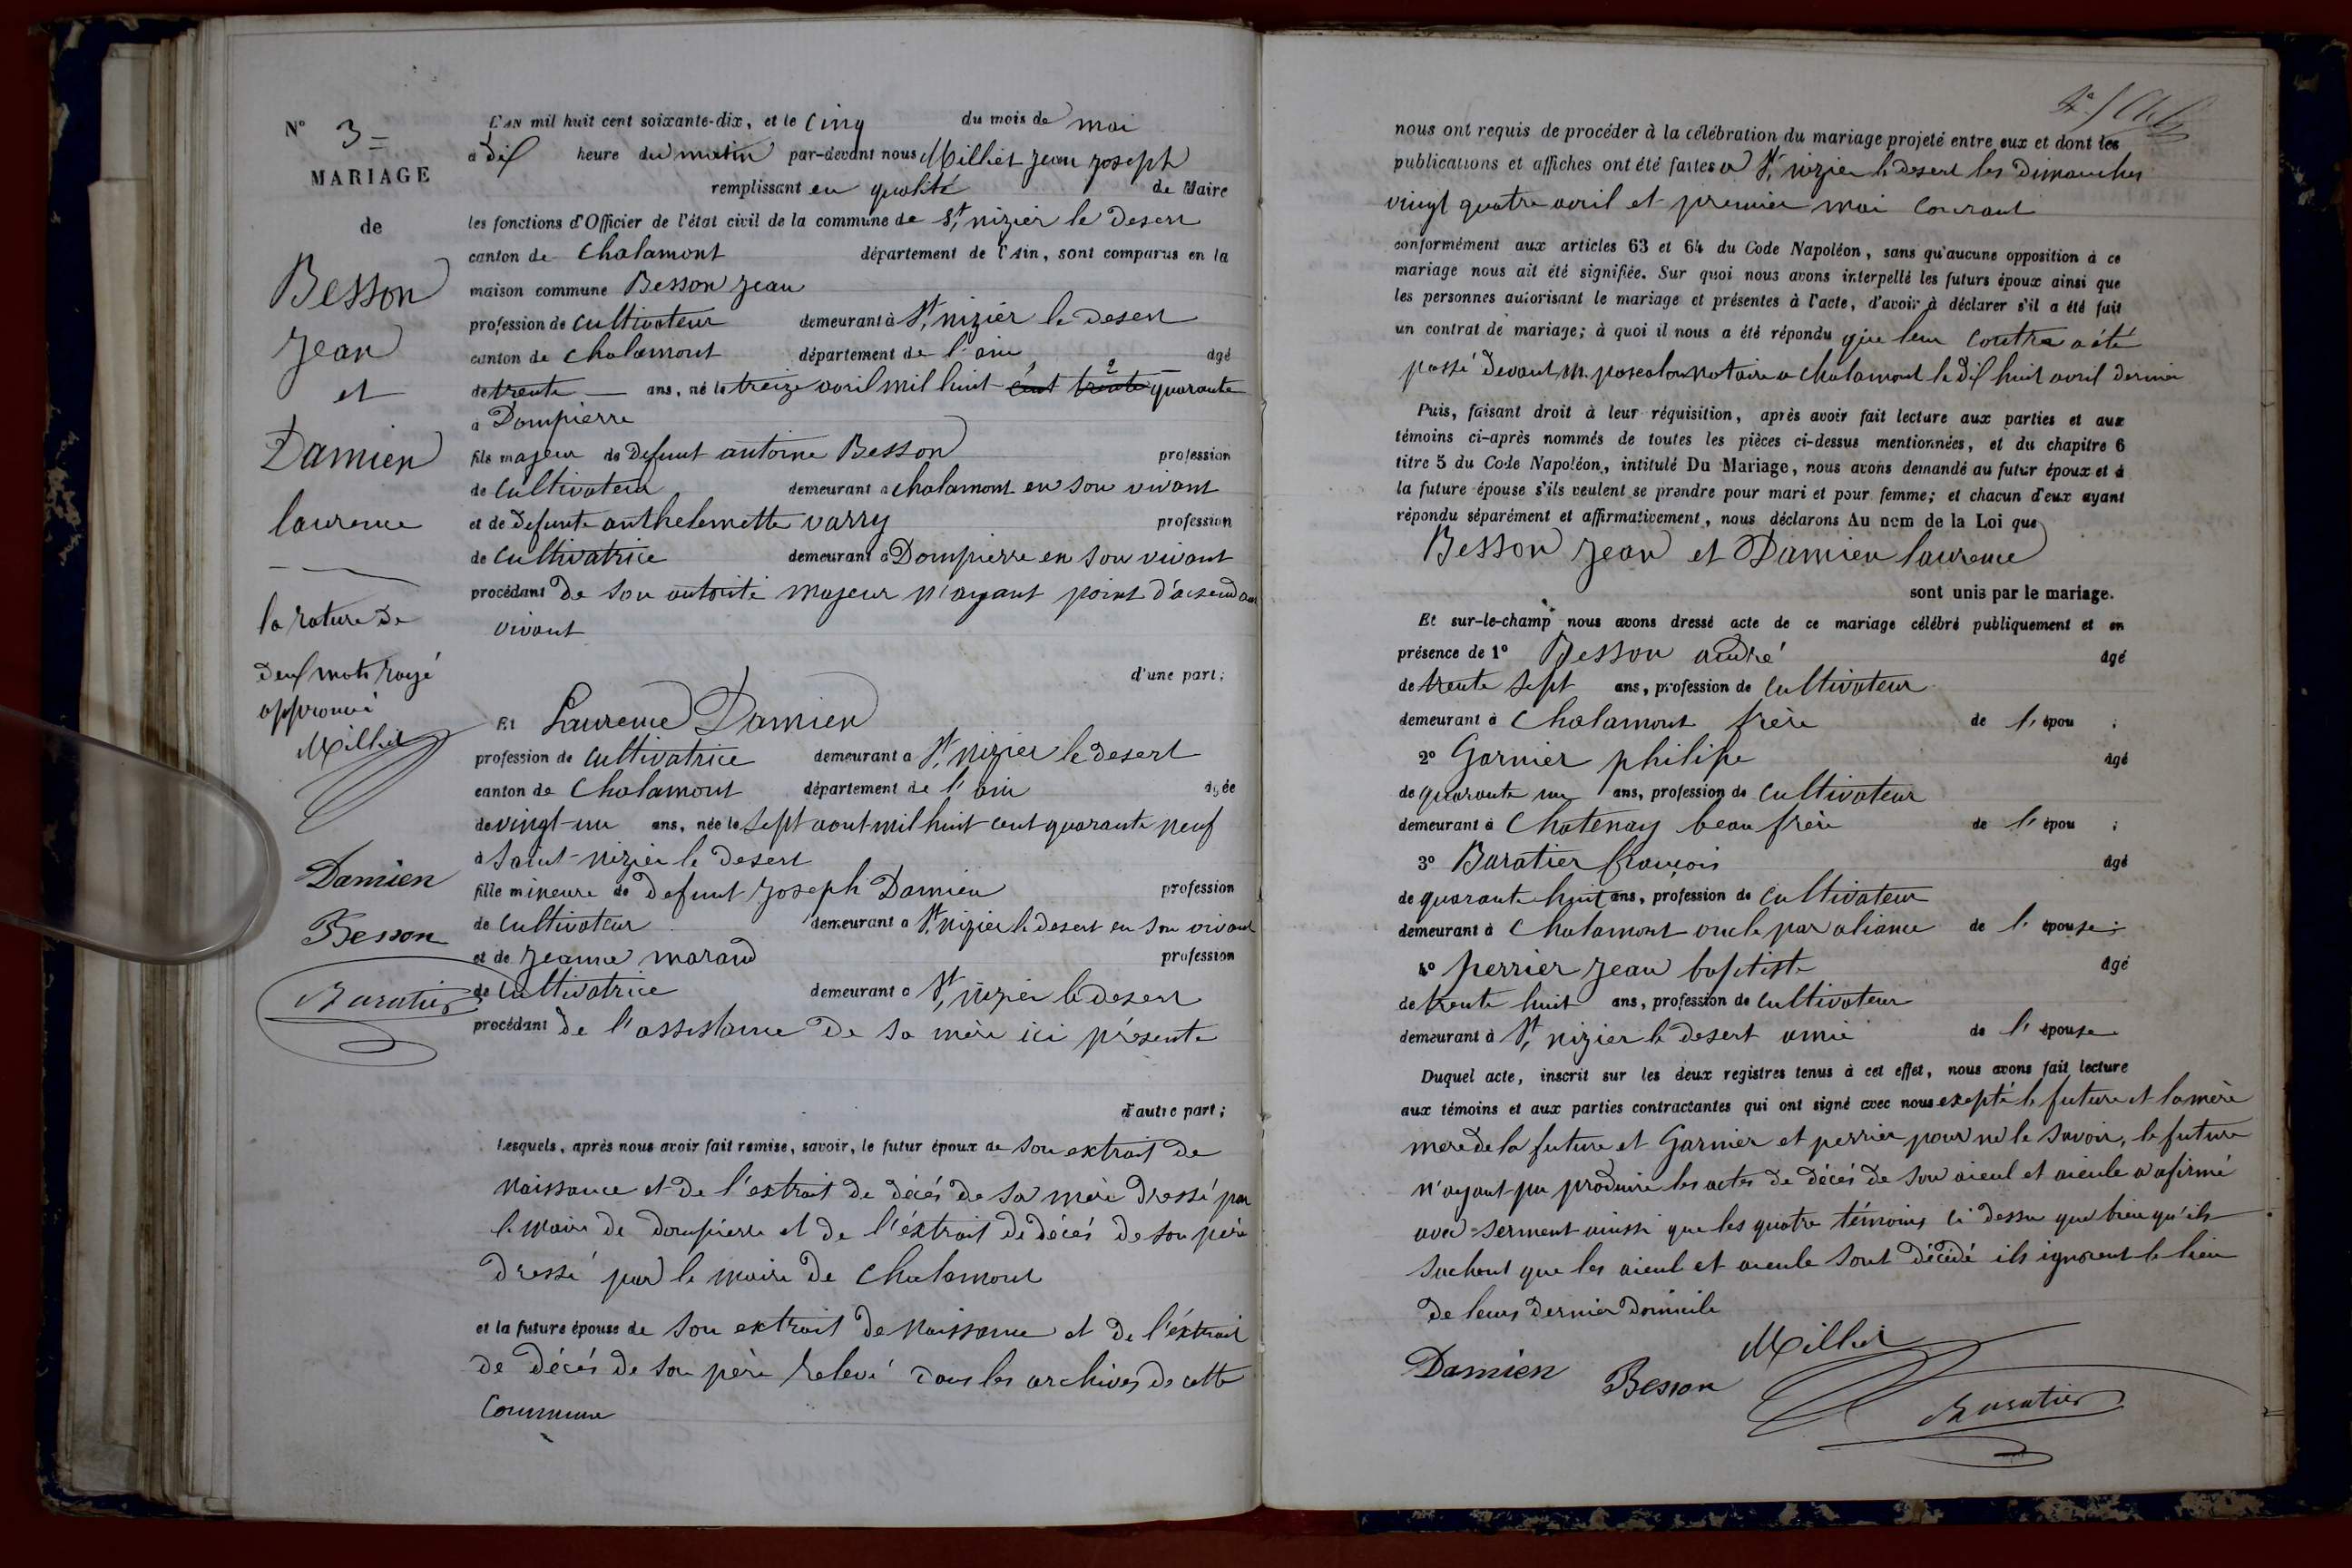 N° 3=
MARIAGE
de
Besson
Jean
et
Damien
laurence
la rature de
deux mots rayé
approuvé
Milliet
Damien
Besson
Baratier
L'AN mil huit cent soixante-dix, et le cinq du mois de mai
à dix heure du matin par-devant nous Milliet jean joseph
remplissant en qualité de Maire
les fonctions d'Officier de l'état civil de la commune de St, nizier le desert
canton de Chalamont département de l'Ain, sont comparus en la
maison commune Besson jean
profession de cultivateur demeurant à St, nizier le desert
canton de chalamont département de l'ain agé
de trente ans, né le treize avril mil huit cent trente quarante
à Dompierre
fils majeur de defunt antoine Besson profession
de cultivateur demeurant a chalamont en son vivant
et de defunte anthelemette varry profession
de cultivatrice demeurant a Dompierre en son vivant
procédant de son autorité majeur n'ayant point d'acsendant
vivant
d'une part;
Et Laurence Damien
profession de cultivatrice demeurant a St, nizier le desert
canton de Chalamont département de l'ain agée
de vingt-un ans, née le sept aout mil huit cent quarante neuf
à Saint-nizier le desert
fille mineure de defunt joseph Damien profession
de cultivateur demeurant a St, nizier le desert en son vivant
et de jeanne marand profession
de cultivatrice demeurant a St, nizier le desert
procédant de l'assistance de sa mère ici présente
d'autre part;
Lesquels, après nous avoir fait remise, savoir, le futur époux de son extrait de
naissance et de l'extrait de décés de sa mère dressé par
le maire de dompierre et de l'éxtrait de décés de son père
dressé par le maire de Chalamont
et la future épouse de son extrait de naissance et de l'éxtrait
de décés de son père relevé dans les archives de cette
commune
nous ont requis de procéder à la célébration du mariage projeté entre eux et dont les
publications et affiches ont été faites a St, nizier le desert les dimanches
vingt quatre avril et premier mai courant
conformément aux articles 63 et 64 du Code Napoléon, sans qu'aucune opposition à ce
mariage nous ait été signifiée. Sur quoi nous avons interpellé les futurs époux ainsi que
les personnes autorisant le mariage et présentes à l'acte, d'avoir à déclarer s'il a été fait
un contrat de mariage; à quoi il nous a été répondu que leur contra a été
passé devant m. notaire a chalamont le dix huit avril dernier
Puis, faisant droit à leur réquisition, après avoir fait lecture aux parties et aux
témoins ci-après nommés de toutes les pièces ci-dessus mentionnées, et du chapitre 6
titre 5 du Code Napoléon, intitulé Du Mariage, nous avons demandé au futur époux et à
la future épouse s'ils veulent se prendre pour mari et pour femme; et chacun d'eux ayant
répondu séparément et affirmativement, nous déclarons Au nom de la Loi que
Besson jean et Damien laurence
sont unis par le mariage.
Et sur-le-champ nous avons dressé acte de ce mariage célébré publiquement et en
présence de 1° Besson andré agé
de trente sept ans, profession de cultivateur
demeurant à Chalamont frère de l'épou ;
2° Garnier philipe agé
de quarante un ans, profession de cultivateur
demeurant à Chatenay beau frère de l'épou ;
3° Baratier françois agé
de quarante huit ans, profession de cultivateur
demeurant à Chalamont oncle par aliance de l'épouse;
4° perrier jean baptiste agé
de trente huit ans, profession de cultivateur
demeurant à St, nizier le desert amie de l'épouse
Duquel acte, inscrit sur les deux registres tenus à cet effet, nous avons fait lecture
aux témoins et aux parties contractantes qui ont signé avec nous exepté le future et la mère
mere de la future et Garnier et perrier pour ne le savoir, le future
n'ayant pu produire les actes de décés de son aieul et aieule a afirmé
avec serment ainssi que les quatre témoins ci dessu que bien qu'ils
sachent que les aieul et aieule sont décédé ils ignorent le lieu
de leurs dernier domicile
Milliet
Damien Besson Baratier